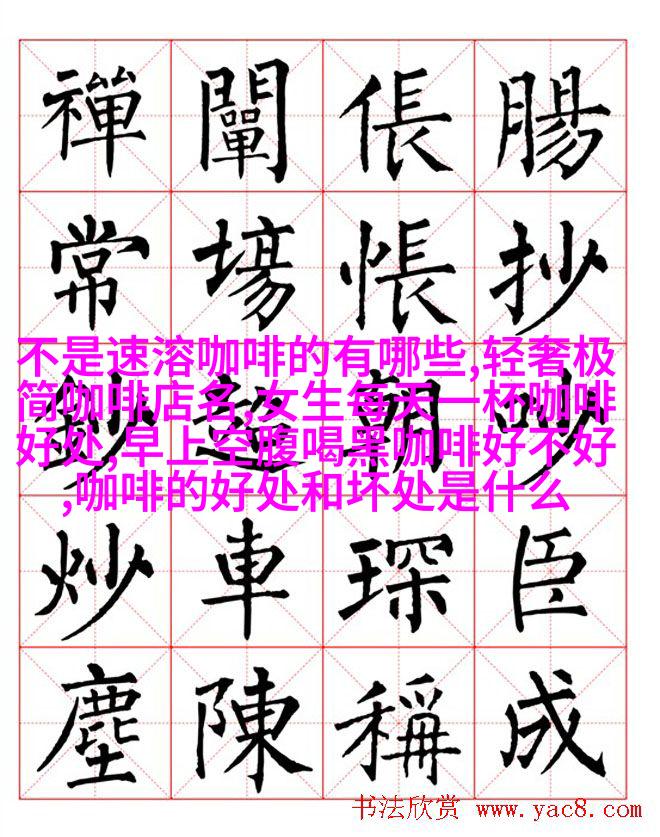 禪 闡 倀 腸
常 場 悵 抄
不是速溶咖啡的有哪些,轻奢极
简咖啡店名,女生每天一杯咖啡
好处,早上空腹喝黑咖啡好不好
,咖啡的好处和坏处是什么
鈔 超 朝 吵
炒 車 琛 臣
塵 陳 稱 成
书法欣赏 www.yac8.com